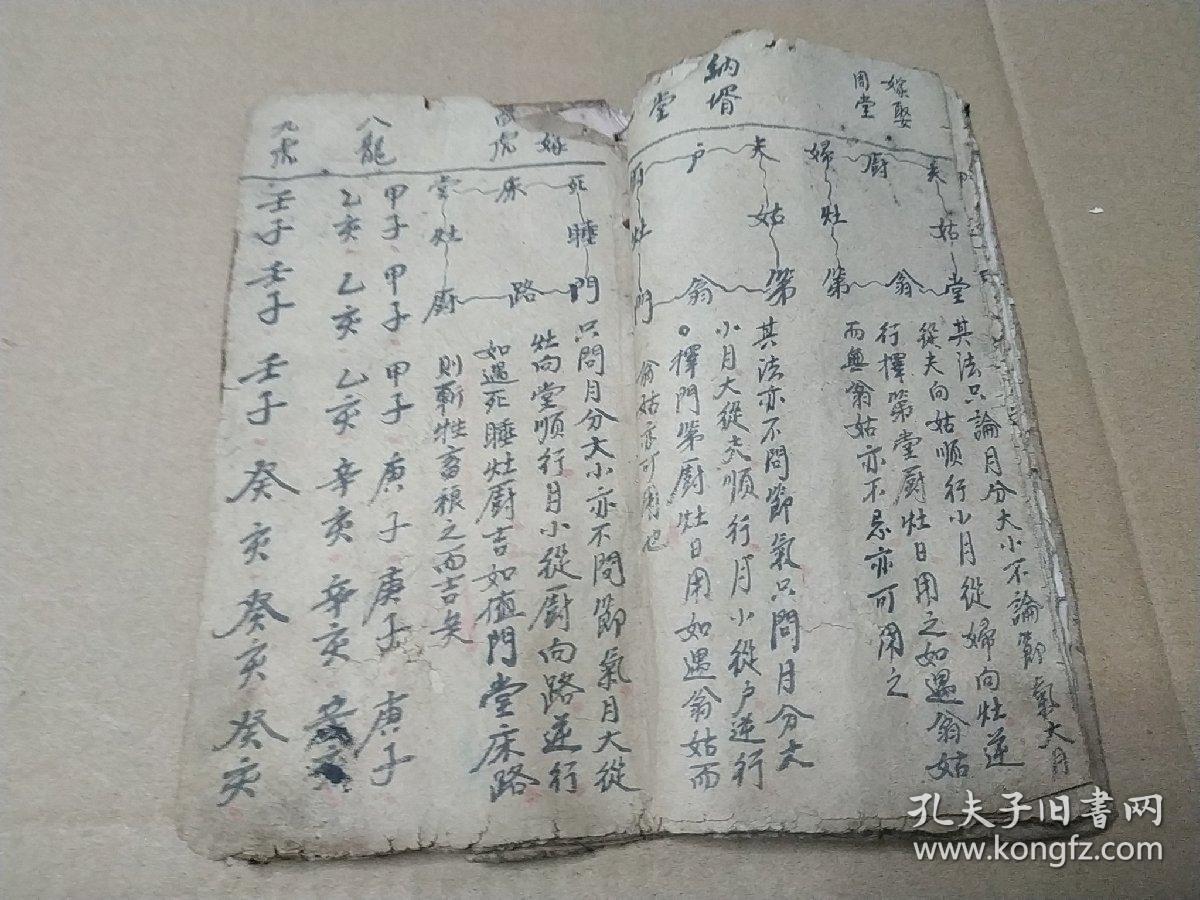 嫁娶
周堂
夫 姑 堂
廚 翁
婦 灶 第
其法只論月分大小不論節氣大月
從夫向姑順行小月從婦向灶逆
行擇第堂廚灶日用之如遇翁姑
而無翁姑亦不忌亦可用之
納壻
堂
夫 姑 第
户 翁
灶 門
其法亦不問節氣只問月分大
小月大從夫順行月小從户逆行
擇門第廚灶日用如遇翁姑而
翁姑亦可用也
嫁
虎
死 睡 門
床 路
堂 灶 廚
只問月分大小亦不問節氣月大從
灶向堂順行月小從廚向路逆行
如遇死睡灶廚吉如值門堂床路
則斬牲畜禳之而吉矣
八龍
甲子 甲子 甲子 庚子 庚子 庚子
乙亥 乙亥 乙亥 辛亥 辛亥
九虎
壬子 壬子 壬子 癸亥 癸亥 癸亥
孔夫子旧书网
www.kongfz.com